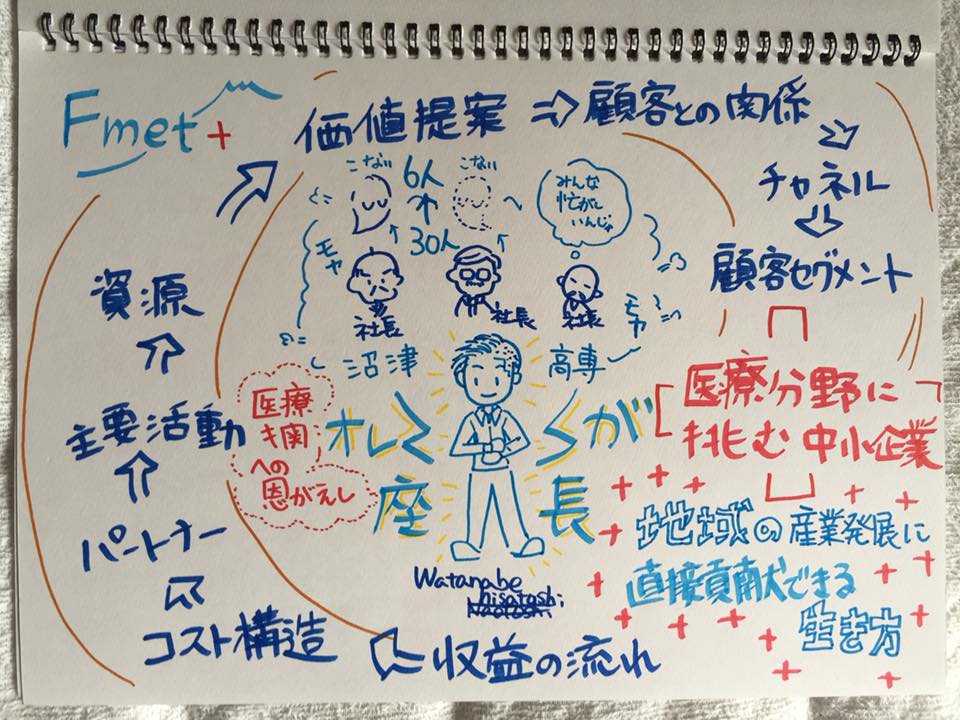 Fmet+
価値提案 ⇒ 顧客との関係
チャネル
顧客セグメント
こない
6人
30人
こない
みんな
忙がし
いんじゃ
モヤ
社長
社長
社長
モヤ
沼津
高専
資源
主要活動
パートナー
コスト構造
収益の流れ
医療
機関
への
恩がえし
オレ
が
座
長
医療分野に
挑む中小企業
地域の産業発展に
直接貢献できる
生き方
Watanabe
hisatoshi
Naotoshi